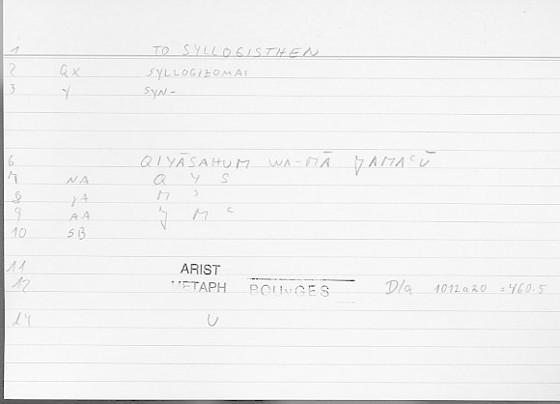 1 TO SYLLOGISTHEN
2 QX SYLLOGIZOMAI
3 Y SYN-
6 QIYĀSAHUM WA-MĀ ǦAMAʿŪ
7 NA Q Y S
8 M
9 AA Ǧ M ʿ
10 SB
11 ARIST
12 METAPH BOUYGES 1012a20 =460.5
14 U